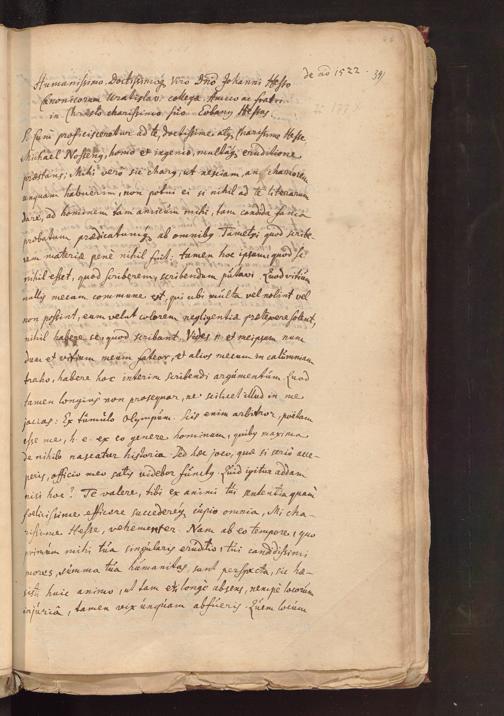 de aõ 1522. 391
Humanissimo Doctissimoq́ Viro Dnõ Johanni Hesso
Canonicorum Wratislav collega Amico ac fratri
in Christo charissimo suo Eobanus Hessus.
proficisceretur ad te, doctissime, atq́ Charissime Hesse
Michael homo et ingenio, multaq́ eruditione
præstans; Mihi vero sic charq, ut nesciam, an chariorem
unquam habuerim, non potui ei si nihil ad te literarum
dare, ad hominem tam amicum mihi, tam candida fama
probatum, prædicatumq́ ab omnibq. Tametsi quod scribe-
rem materiæ pene nihil fuit: tamen hoc ipsum, quod si
nihil esset, quod scriberem, scribendum putavi. Quod vitium
multis mecum commune est, qui ubi multa vel nolint vel
non possint, eum velut colorem negligentiæ prætexere solent,
nihil habere se, quod scribant. Vides n. et meipsum nun
dum et vitium meum fateor, et alios mecum in calumniam
traho, habere hoc interim scribendi argumentum. Quod
tamen longius non prosequor, ne scilicet illud in me
jacias: Ex tumulo Olympum. Scis enim arbitror, poëtam
esse me, h. e. ex eo genere hominum, quibq maxima
de nihilo nascatur historia. Sed hæc joco, quæ si serio acce-
peris, officio meo satis videbor functq. Quid igitur addam
nisi hoc? Te valere, tibi ex animi tui sententia quam
felicissime efficere succedereq́ cupio omnia, Mi cha-
rissime Hesse, vehementer. Nam ab eo tempore, quo
primum mihi tua singularis eruditio, tui candidissimi
mores, summa tua humanitas, sunt perspecta, sic hæ-
sisti huic animo, ut tam etsi longe absens, nempe locorum
injuriâ, tamen vix unquam abfueris. Quem locum